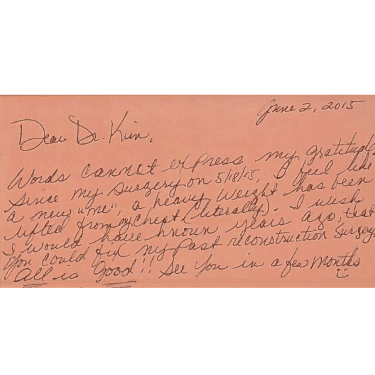 June 2, 2015
Dear Dr. Kim,
Words cannot express my gratitude
Since my surgery on 5/18/15, I feel like
a new "me", a heavy weight has been
lifted from my chest (literally). I wish
I would have known years ago, that
you could fix my past reconstruction surgery
All is Good!! See you in a few months